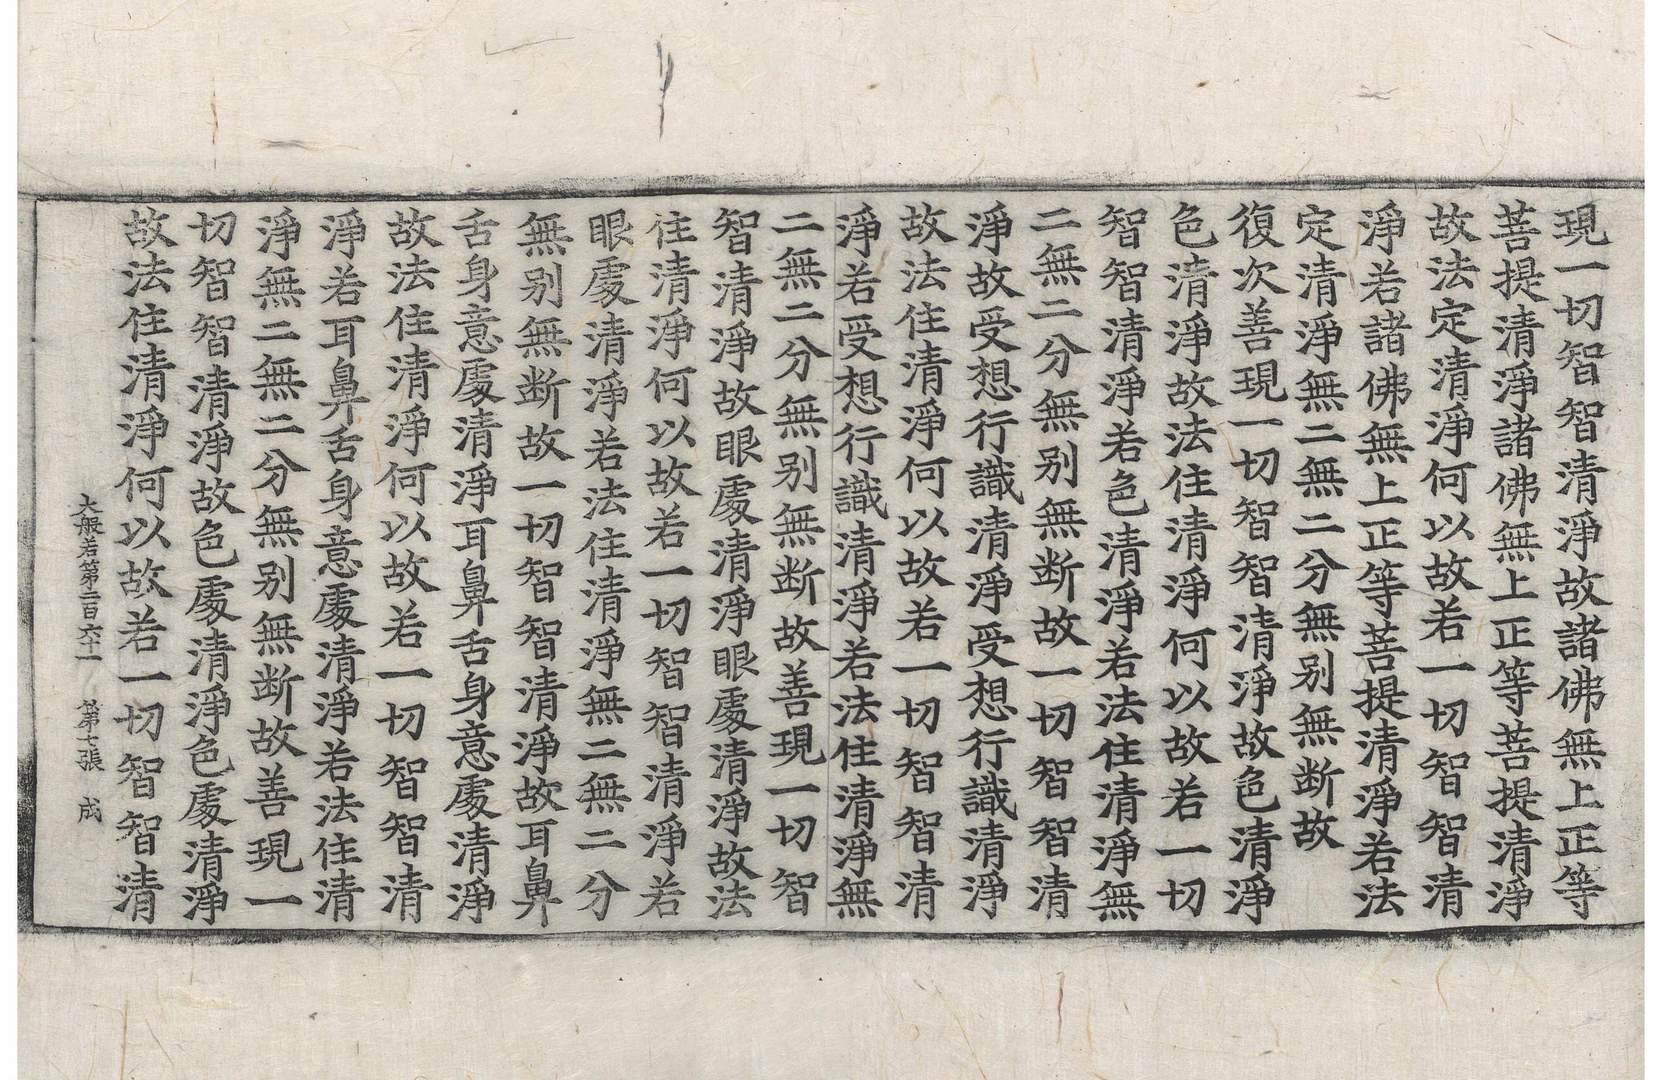 現一切智智清淨故諸佛無上正等
菩提清淨諸佛無上正等菩提清淨
故法定清淨何以故若一切智智清
淨若諸佛無上正等菩提清淨若法
定清淨無二無二分無別無断故
復次善現一切智智清淨故色清淨
色清淨故法住清淨何以故若一切
智智清淨若色清淨若法住清淨無
二無二分無別無断故一切智智清
淨故受想行識清淨受想行識清淨
故法住清淨何以故若一切智智清
淨若受想行識清淨若法住清淨無
二無二分無別無断故善現一切智
智清淨故眼處清淨眼處清淨故法
住清淨何以故若一切智智清淨若
眼處清淨若法住清淨無二無二分
無別無断故一切智智清淨故耳鼻
舌身意處清淨耳鼻舌身意處清淨
故法住清淨何以故若一切智智清
淨若耳鼻舌身意處清淨若法住清
淨無二無二分無別無断故善現一
切智智清淨故色處清淨色處清淨
故法住清淨何以故若一切智智清
大般若第二百六十一 第七張 成